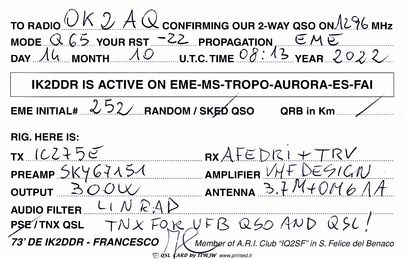 TO RADIO OK2AQ CONFIRMING OUR 2-WAY QSO ON 1296 MHz
MODE Q65 YOUR RST -22 PROPAGATION EME
DAY 14 MONTH 10 U.T.C. TIME 08:13 YEAR 2022
IK2DDR IS ACTIVE ON EME-MS-TROPO-AURORA-ES-FAI
EME INITIAL# 252 RANDOM / SKED QSO QRB in Km
RIG. HERE IS:
TX IC275E RX AFEDRI + TRV
PREAMP SKY67151 AMPLIFIER VHFDESIGN
OUTPUT 300W ANTENNA 3.7M+OM6AA
AUDIO FILTER LINRAD
PSE/TNX QSL TNX FOR UFB QSO AND QSL!
73' DE IK2DDR - FRANCESCO Member of A.R.I. Club "IQ2SF" in S. Felice del Benaco
QSL CARD by IT9EJW www.printed.it